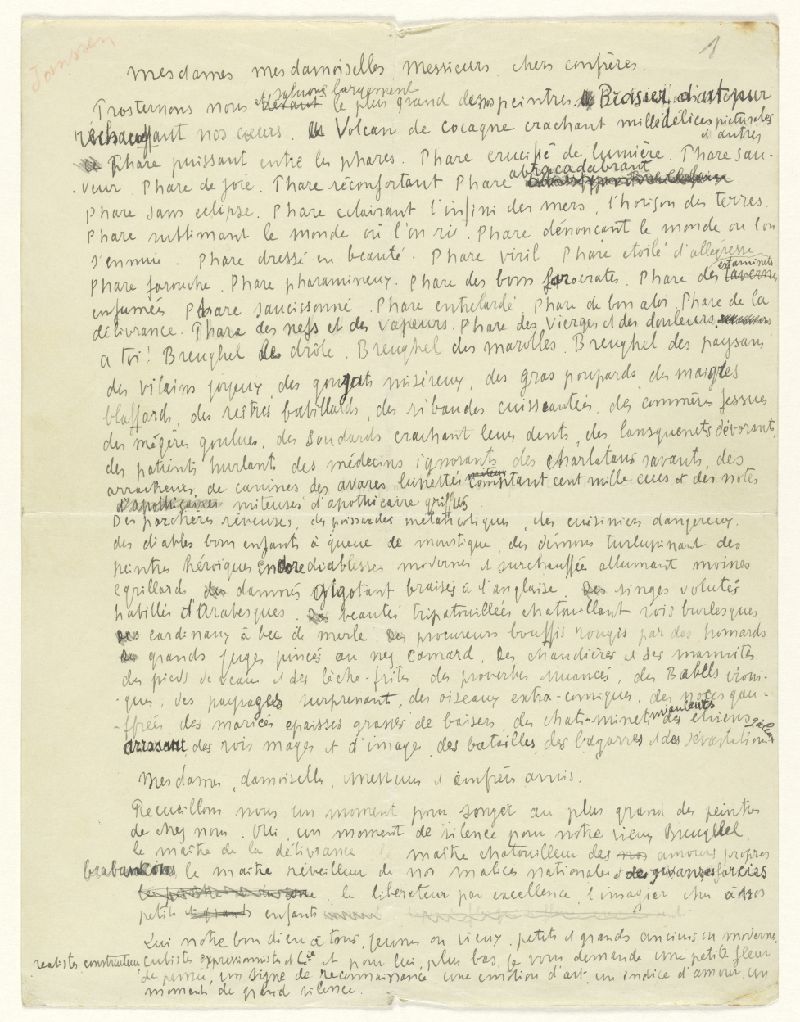 Janssen
1
Mesdames mesdamoiselles, Messieurs chers confrères.
Prosternons nous et saluons largement devant le plus grand de nos peintres. Brasier d'art pur
réchauffant nos cœurs. Volcan de cocagne crachant milli délices picturales et autres
Phare puissant entre les phares. Phare crucifié de lumière. Phare sau-
veur Phare de joie. Phare réconfortant Phare abracadabrant
Phare sans eclipse. Phare eclairant l'infini des mers, l'horison des terres.
Phare sublimant le monde où l'on rit. Phare dénonçant le monde ou l'on
s'ennuie. Phare dressé en beauté. Phare viril Phare etoilé d'allegresse
Phare farouche. Phare pharamineux. Phare des bons Phare des estaminets tavernes
enfumées Phare saucissonné. Phare entrelardé Phare de bon aloi, Phare de la
délivrance. Phare des nefs et des vapeurs. Phare des Vierges et des douleurs
a toi! Breughel le drôle. Breughel des marolles. Breughel des paysans
des vilains joyeux, des gougats miséreux, des gras poupards, des maigres
blaffards, des reîtres babillards, des ribaudes cuisseautées, des commères fessues
des mégères goulues, des Soudards crachant leurs dents, des lansquenets dévorant,
des patients hurlant des médecins ignorants des charlatans savants, des
arracheurs de canines des avares lunettés comptant cent mille ecus et des notes
miteuses d'apothicaire griffus.
Des porchères rêveuses, des poissardes métaphoriques, des cuisiniers dangereux.
des diables bons enfants à queue de moustique, des démons turlupinant des
peintres héroïques encore diablesses modernes et surchauffée allumant moines
egrillards des damnés gigotant braisés à l'anglaise. Des singes volutés
habillés d'Arabesques. Des beautés tripatouillées chatouillant rois burlesques
des cardenaux à bec de merle Des procureurs bouffis rougis par des homards
de grands juges pincés au nez camard, Des chaudières et des marmites
des pieds de veaux et des lèche-frites des proverbes nuancés, des Babels
-ques, des paysages surprenant, des oiseaux extra-comiques, des noces gau-
-ffrées des mariées epaisses grasses de baisers des chats-minet miaulants des chiens
des rois mages et d'image, des batailles des bagarres et des dévastations
Mesdames, damoiselles, Messieurs et confrères amis.
Recueillons nous un moment pour songer au plus grand des peintres
de chez nous. Oui, un moment de silence pour notre vieux Breughel
le maître de la délivrance maître chatouilleur des nos amours propres
brabançons le maître réveilleur de nos malices nationales farcies
le libérateur par excellence, l'imagier cher à nos
petits et grands enfants
Qui notre bon dieu à tous, jeunes ou vieux, petits et grands anciens ou modernes,
realistes constructeurs cubistes expressionistes et Cie et pour lui, plus bas, je vous demande une petite fleur
de pensée, un signe de reconnaissance une emotion d'art, un indice d'amour, un
moment de grand silence.